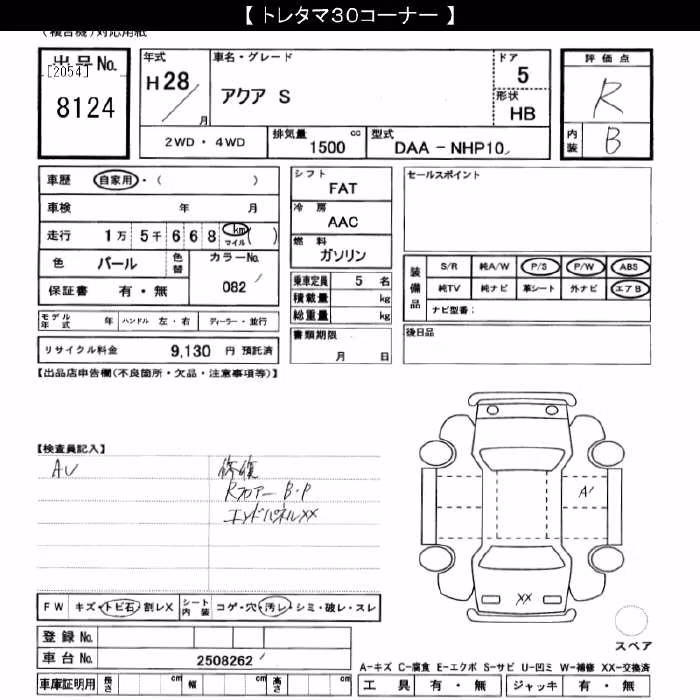 【 トレタマ30コーナー 】
(複合機)対応用紙
出品No.
[2054]
8124
年式
H28/
月
車名・グレード
アクア S
ドア
5
形状
HB
評価点
R
内装
B
2WD・4WD
排気量
cc
1500
型式
DAA - NHP10
車歴 自家用・( )
車検 年 月
走行 1万 5千 6 6 8 km マイル ( )
色 パール 色替 カラーNo.
082
保証書 有・無
モデル年式 年 ハンドル 左・右 ディーラー・並行
リサイクル料金 9,130 円 預託済
シフト
FAT
冷房
AAC
燃料
ガソリン
乗車定員 5 名
積載量 kg
総重量 kg
書類期限
月 日
セールスポイント
装備品
S/R 純A/W P/S P/W ABS
純TV 純ナビ 革シート 外ナビ エアB
ナビ型番:
後日品
【出品店申告欄(不良箇所・欠品・注意事項等)】
【検査員記入】
AV
修復
Rフロアー B・P
エンドパネルXX
A1
XX
スペア
FW キズ・トビ石・割レX シート内装 コゲ・穴・汚レ・シミ・破レ・スレ
登録No.
車台No. 2508262
車庫証明用 長さ cm 幅 cm 高さ cm
A-キズ C-腐食 E-エクボ S-サビ U-凹ミ W-補修 XX-交換済
工具 有・無 ジャッキ 有・無